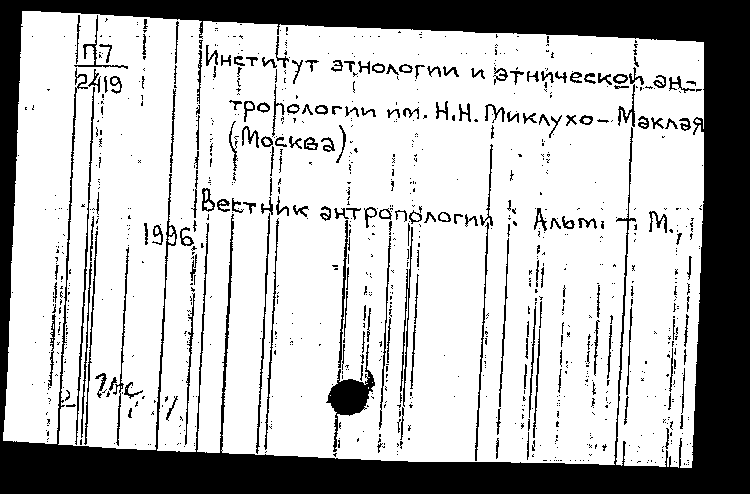 П7
2419
Институт этнологии и этнической ан-
тропологии им. Н.Н. Миклухо-Маклая
(Москва).
Вестник антропологии : Альм. — М.,
1996.
2